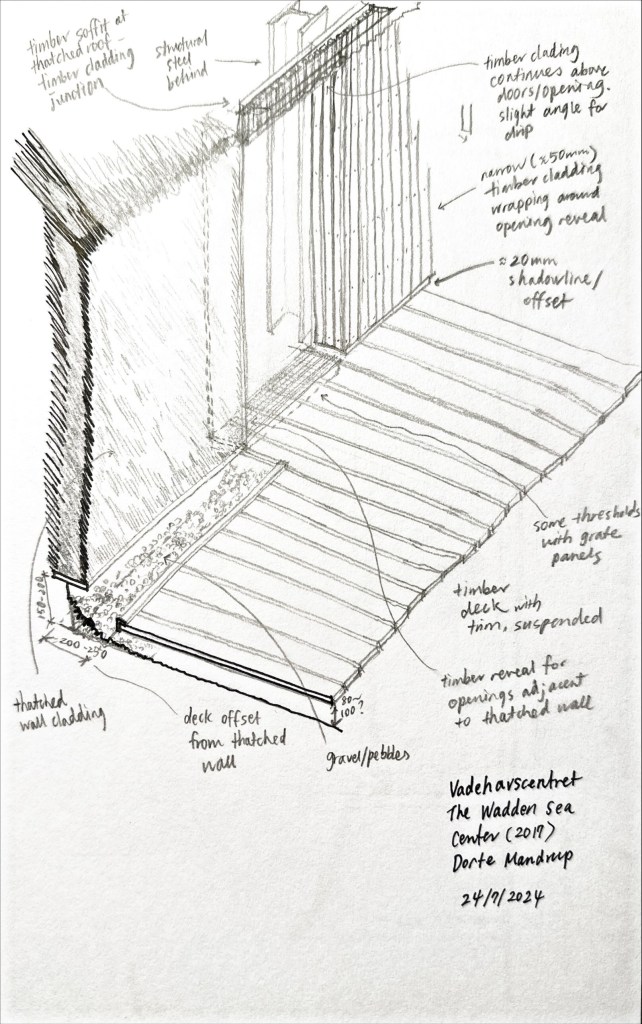 timber soffit at
thatched roof -
timber cladding
junction
structural
steel
behind
timber clading
continues above
doors/opening.
slight angle for
drip
narrow (≈50mm)
timber cladding
wrapping around
opening reveal
≈20mm
shadowline/
offset
some thresholds
with grate
panels
timber
deck with
trim, suspended
timber reveal for
openings adjacent
to thatched wall
150-200
200-250
80~
100?
thatched
wall cladding
deck offset
from thatched
wall
gravel/pebbles
Vadehavscentret
The Wadden Sea
Center (2017)
Dorte Mandrup
24/7/2024